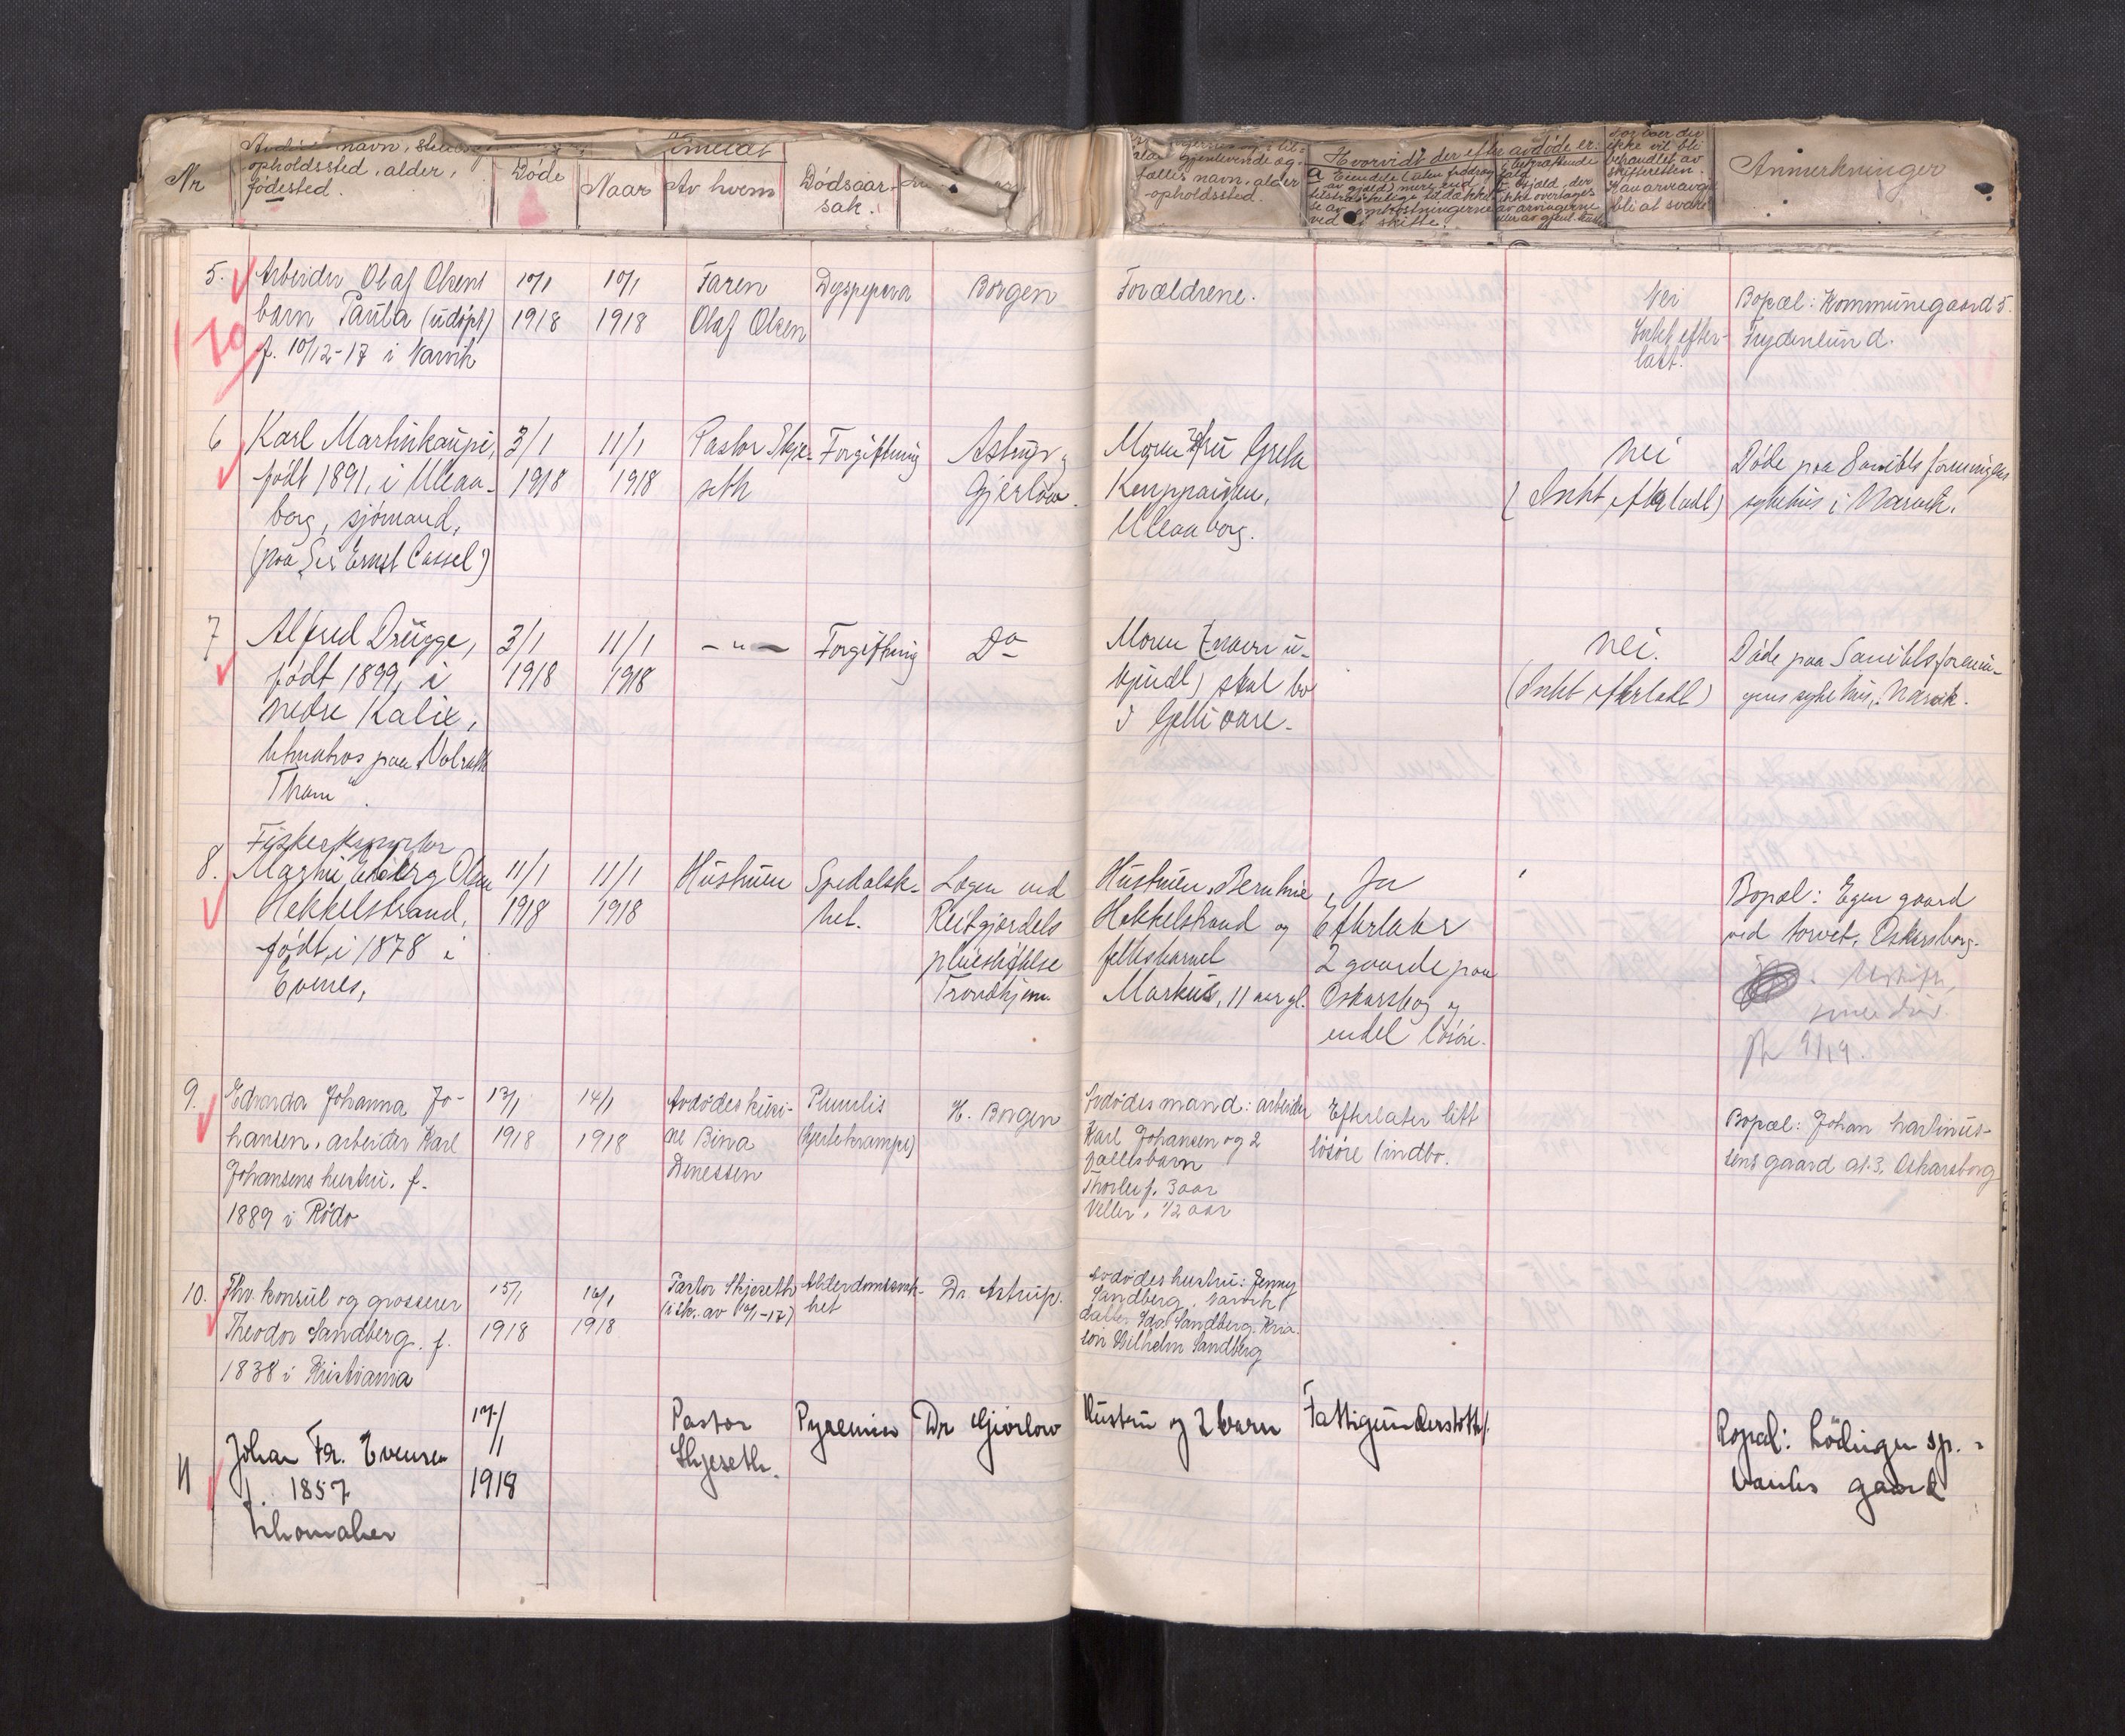 Nr
navn,
opholdssted, alder,
fødested.
Døde
Naar
Av hvem
Dødsaar-
sak.
gjenlevende æg-
tefælles navn, alder
opholdssted.
Hvorvidt der efter avdøde er:
a
ved skifte.
ikke vil bli
behandlet av
skifteretten.
Anmerkninger
5.
Arbeider Olaf Olsens
barn Paula (udøpt)
f. 10/12-17 i Narvik
10/1
1918
10/1
1918
Faren
Olaf Olsen
Dyspepsia
Borgen
Forældrene.
Nei
Intet efter-
latt.
Bopæl: Kommunegaard 5.
Frydenlund.
6
Karl Martinkaupi,
født 1891, i Uleaa-
borg, sjømand,
(paa Sir Ernst Cassel)
3/1
1918
11/1
1918
Pastor Skje-
seth
Forgiftning
Astrup og
Gjerløw.
Moren Fru Greta
Uleaaborg.
nei
(Intet efterladt)
Døde paa Sanitetsforeningens
sykehus i Narvik.
7
Alfred Drugge,
født 1899, i
nedre Kalix,
letmatros paa "Volrath
Tham".
3/1
1918
11/1
1918
- " -
Forgiftning
Do
Moren (navn u-
kjendt) skal bo
i Gellivare.
nei.
(Intet efterladt)
Døde paa Sanitetsforenin-
gens sykehus, Narvik.
8.
Fiskeskipper
Martin Olsen
Hekkelstrand,
født i 1878 i
Evenes,
11/1
1918
11/1
1918
Hustruen
Spedalsk-
het.
Lægen ved
Reitgjerdets
pleiestiftelse
Trondhjem
Hustruen,
Hekkelstrand og
fellesbarnet
Markus, 11 aar gl.
Ja
Efterlater
2 gaarde paa
Oskarsborg og
endel løsøre.
Bopæl: Egen gaard
ved torvet, Oskarsborg.
9/19.
9.
Edvarda Johanna Jo-
hansen, arbeider Karl
Johansens hustru. f.
1889 i Rødø
13/1
1918
14/1
1918
Avdødes kusi-
ne Bina
Benessen
(hjertekrampe)
H. Borgen
Avdødes mand: arbeider
Karl Johansen og 2
fællesbarn
Thorleif, 3 aar
1/2 aar
Efterlater litt
løsøre (indbo.
Bopæl: Johan Martinus-
sens gaard at. 3, Oskarsborg
10.
Fhv. konsul og grosserer
Theodor Sandberg. f.
1838 i Kristiania
15/1
1918
16/1
1918
Pastor Skjeseth
(i sk. av 16/1-17)
Alderdomssvak-
het
Dr. Astrup.
Avdødes hustru: Jenny
Sandberg, Narvik
datter Ida Sandberg. Kria.
søn Wilhelm Sandberg
11
Johan Fr. Evensen
f. 1857
skomaker
17/1
1918
Pastor
Skjeseth.
Pyæmia
Dr Gjørlow
Hustru og 2 barn
Fattigunderstøttet.
Bopæl: Lødingen sp. =
banks gaard